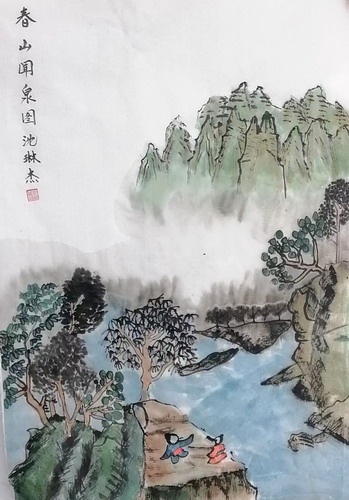 春山闻泉图沈琳杰